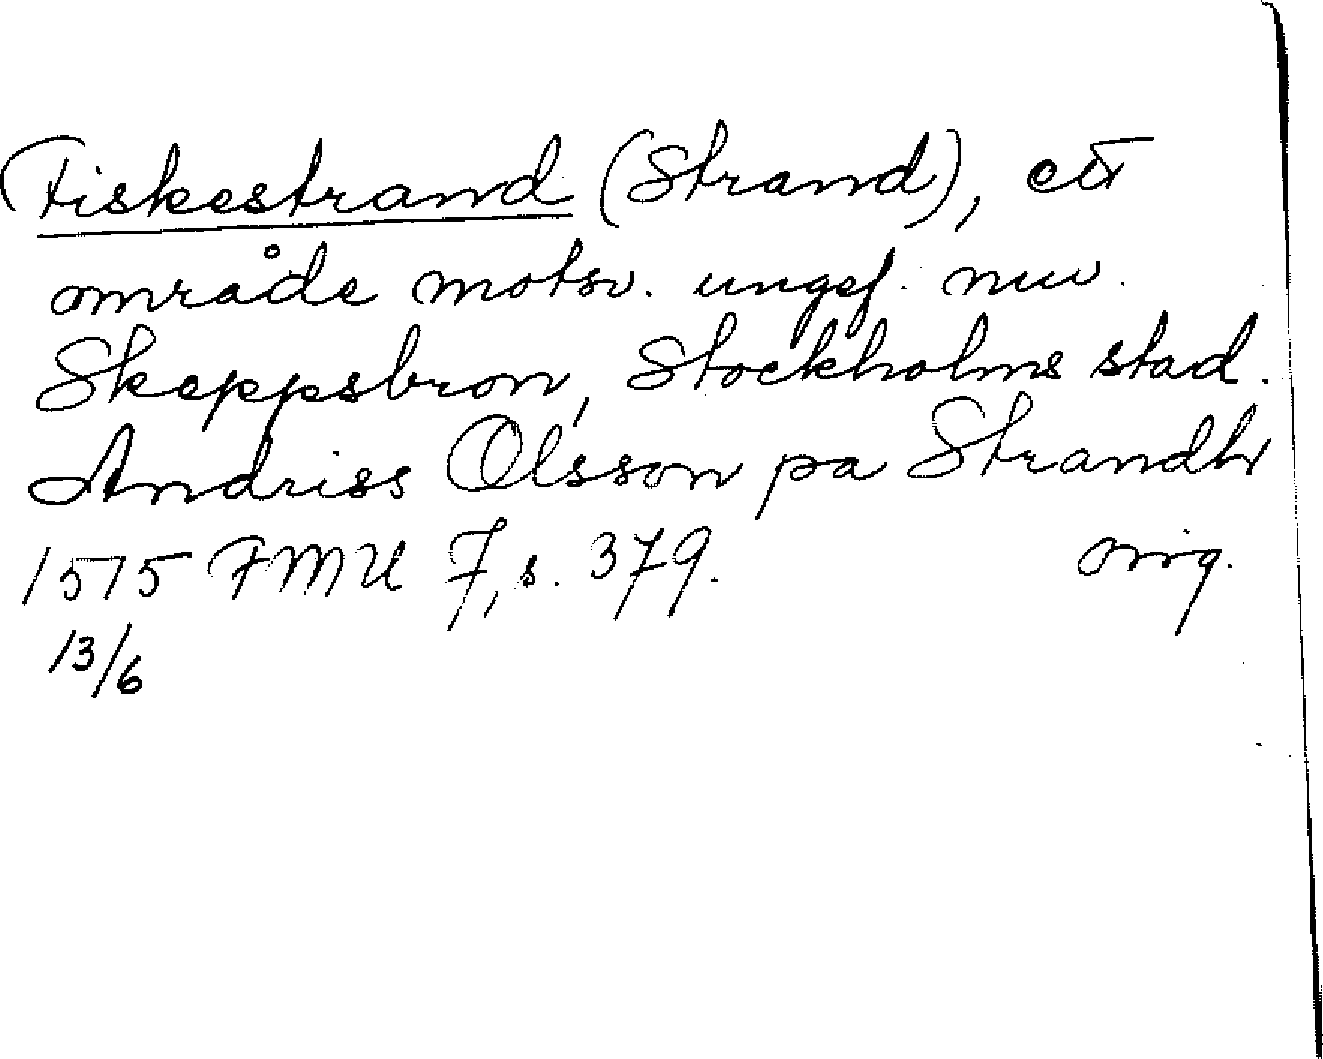 Fiskestrand (Strand), ett
område motsv. ungef. nuv.
Skeppsbron, Stockholms stad.
Andriss Olsson pa Strandh
1515 FMU 7, s. 379. orig.
13/6